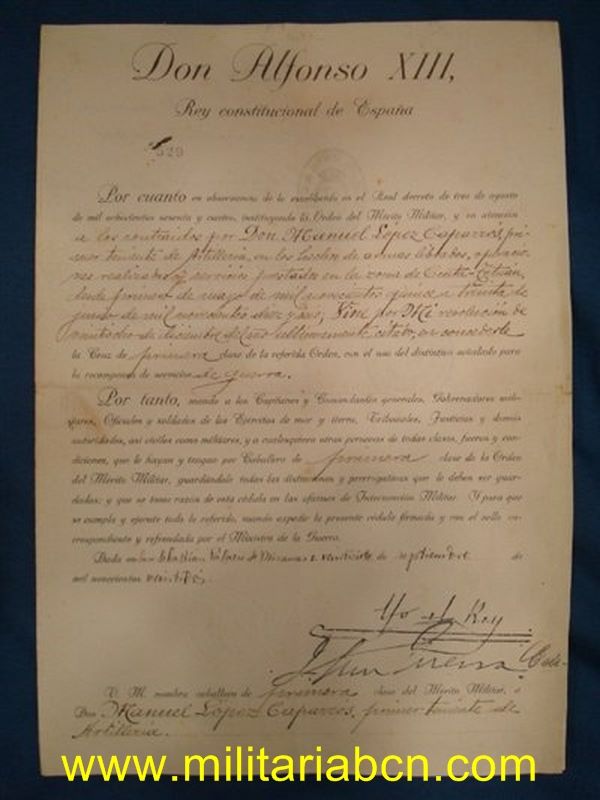 Don Alfonso XIII,
Rey constitucional de España
529
Por cuanto en observancia de lo establecido en el Real decreto de tres de agosto
de mil ochocientos sesenta y cuatro, instituyendo la Orden del Mérito Militar, y en atención
a los contraidos por Don Manuel López Caparrós, pri-
mer teniente de Artillería, en los hechos de armas librados, operacio-
nes realizadas y servicios prestados en la zona de Ceuta-Tetuán,
desde primero de mayo de mil novecientos quince a treinta de
junio de mil novecientos diez y seis, Vine por Mi resolución de
de diciembre del año últimamente citado, en concederle
la Cruz de primera clase de la referida Orden, con el uso del distintivo señalado para
la recompensa de servicios de guerra.
Por tanto, mando a los Capitanes y Comandantes generales, Gobernadores mili-
tares, Oficiales y soldados de los Ejércitos de mar y tierra, Tribunales, Justicias y demás
autoridades, así civiles como militares, y a cualesquiera otras personas de todas clases, fueros y con-
diciones, que le hayan y tengan por Caballero de primera clase de la Orden
del Mérito Militar, guardándole todas las distinciones y prerrogativas que le deben ser guar-
dadas; y que se tome razón de esta cédula en las oficinas de Intervención Militar. Y para que
se cumpla y ejecute todo lo referido, mando expedir la presente cédula firmada y con el sello co-
rrespondiente y refrendada por el Ministro de la Guerra.
Dada en San Sebastián Palacio de Miramar a de septiembre de
mil novecientos
Yo el Rey
V. M. nombra caballero de primera clase del Mérito Militar, a
Don Manuel López Caparrós, primer teniente de
Artillería.
www.militariabcn.com